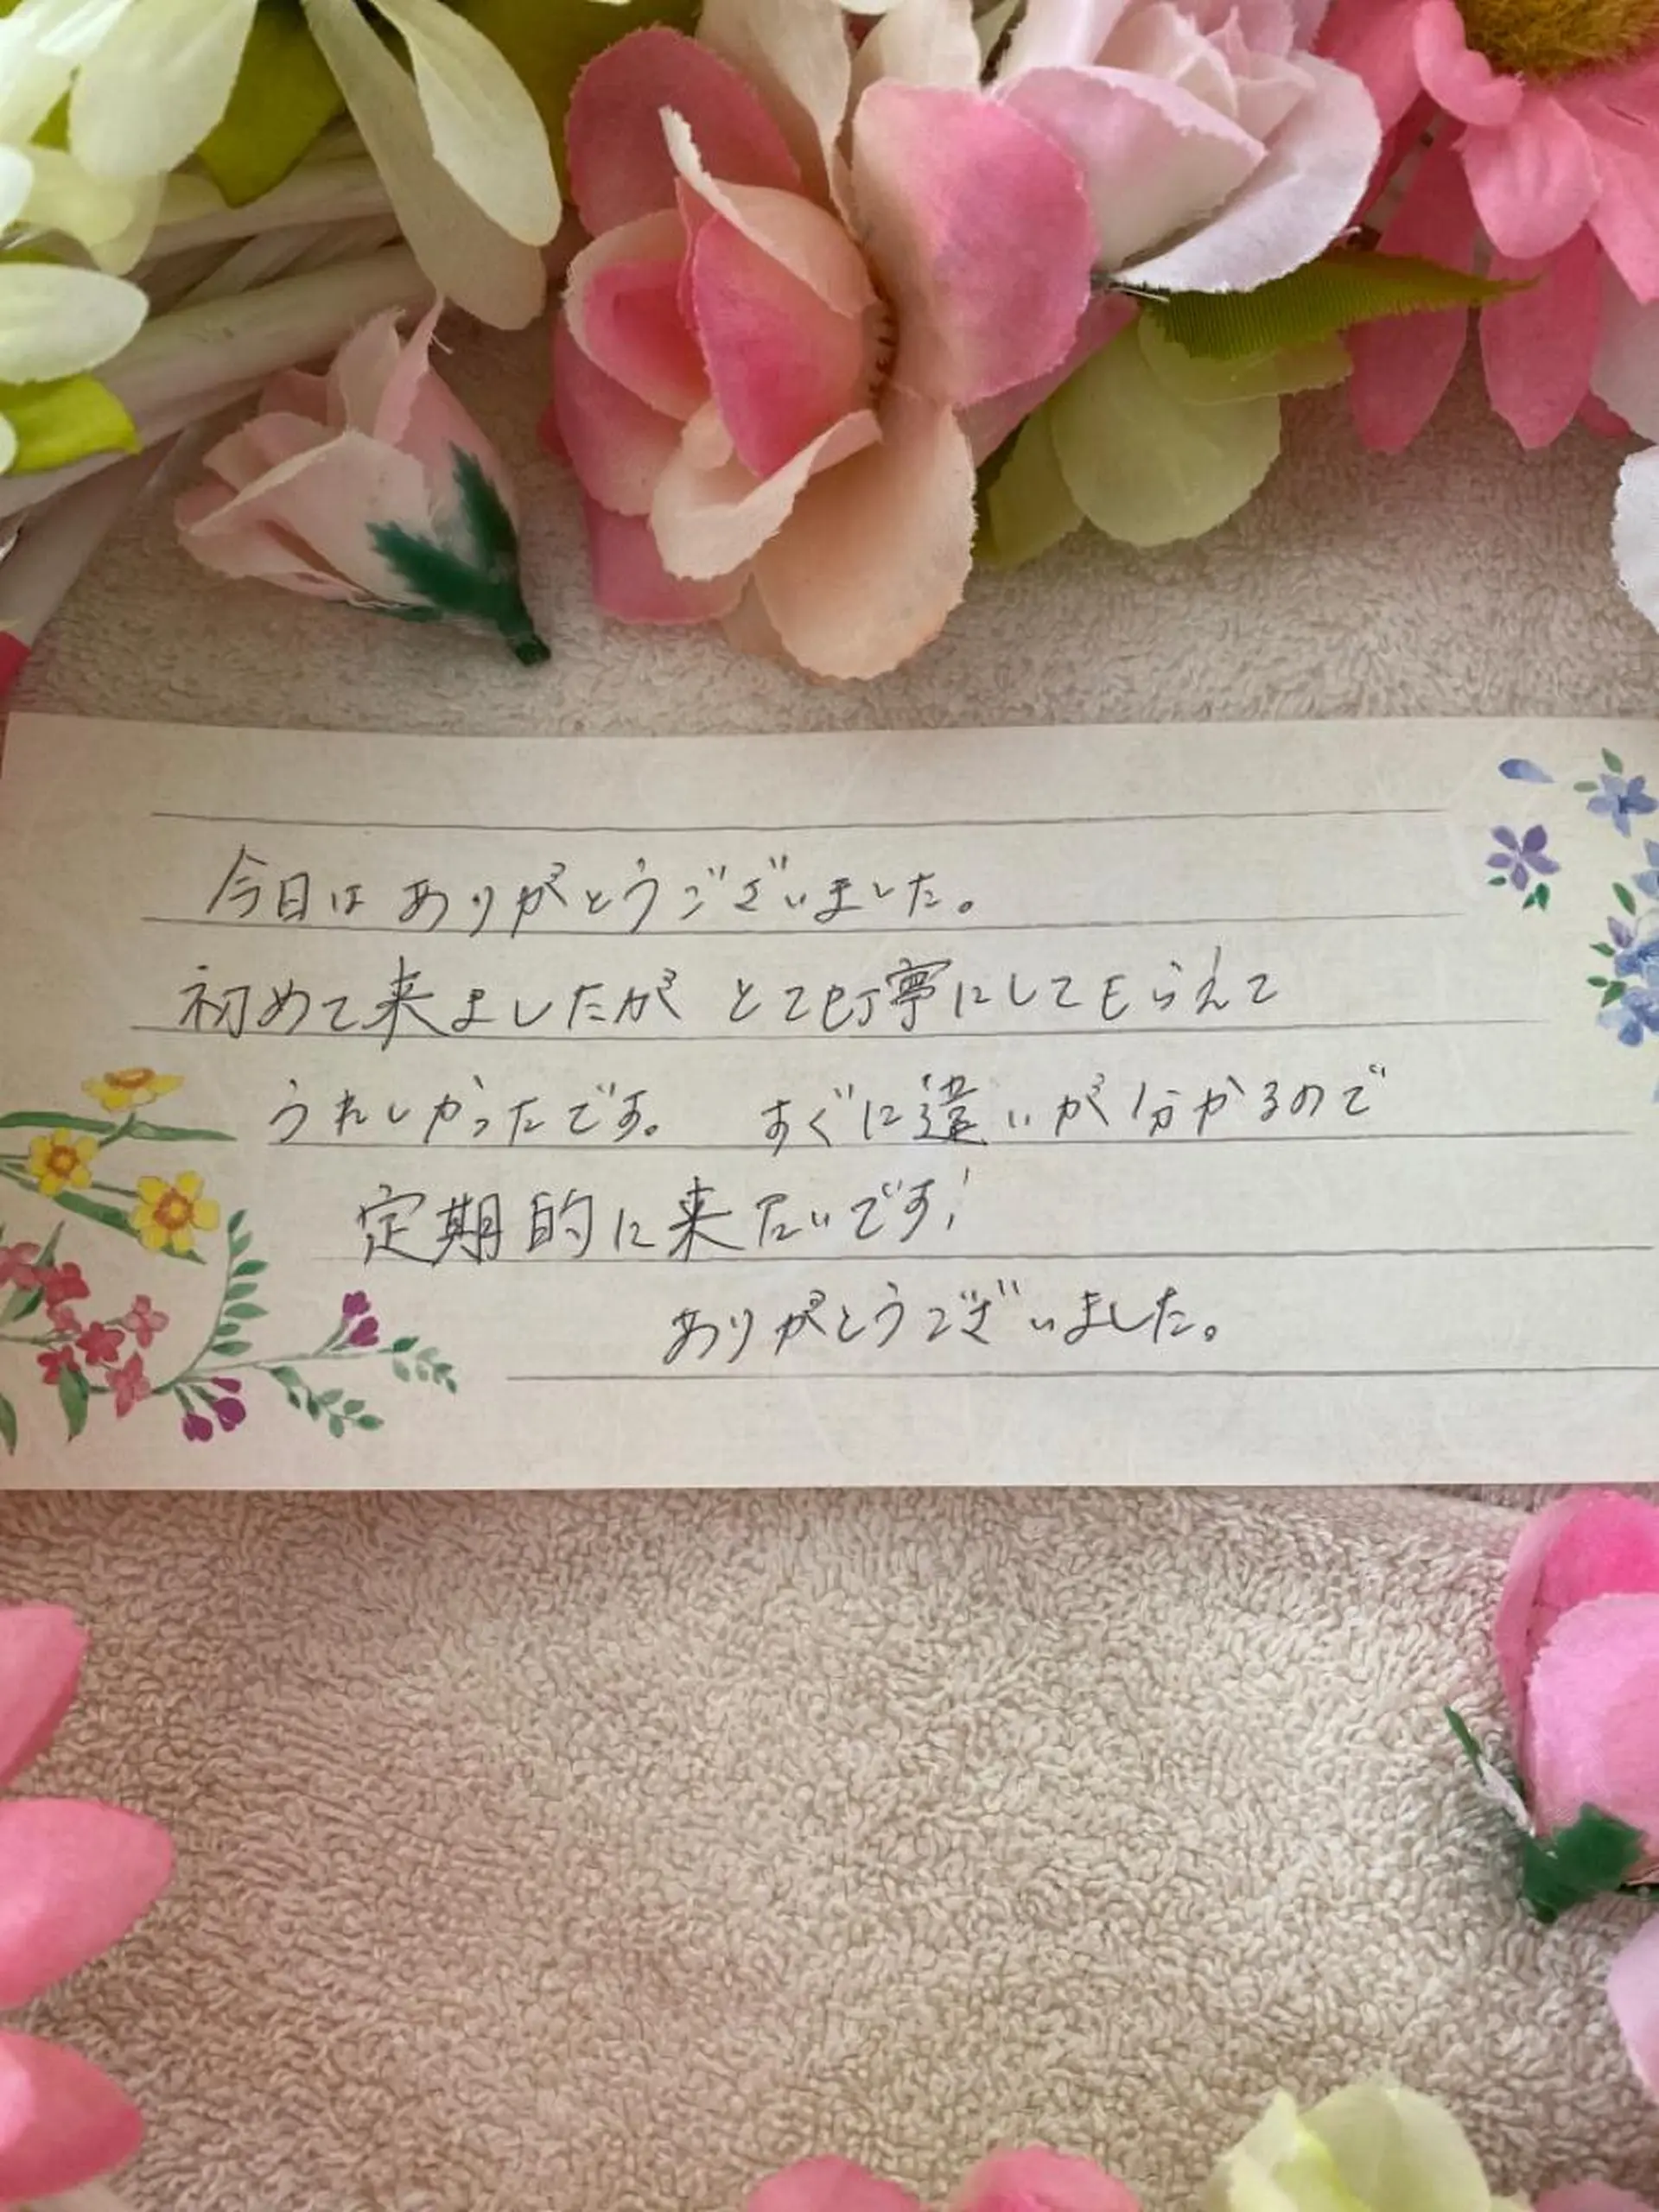 今日はありがとうございました。
初めて来ましたが とても丁寧にしてもらえて
うれしかったです。 すぐに違いが分かるので
定期的に来たいです!
ありがとうございました。